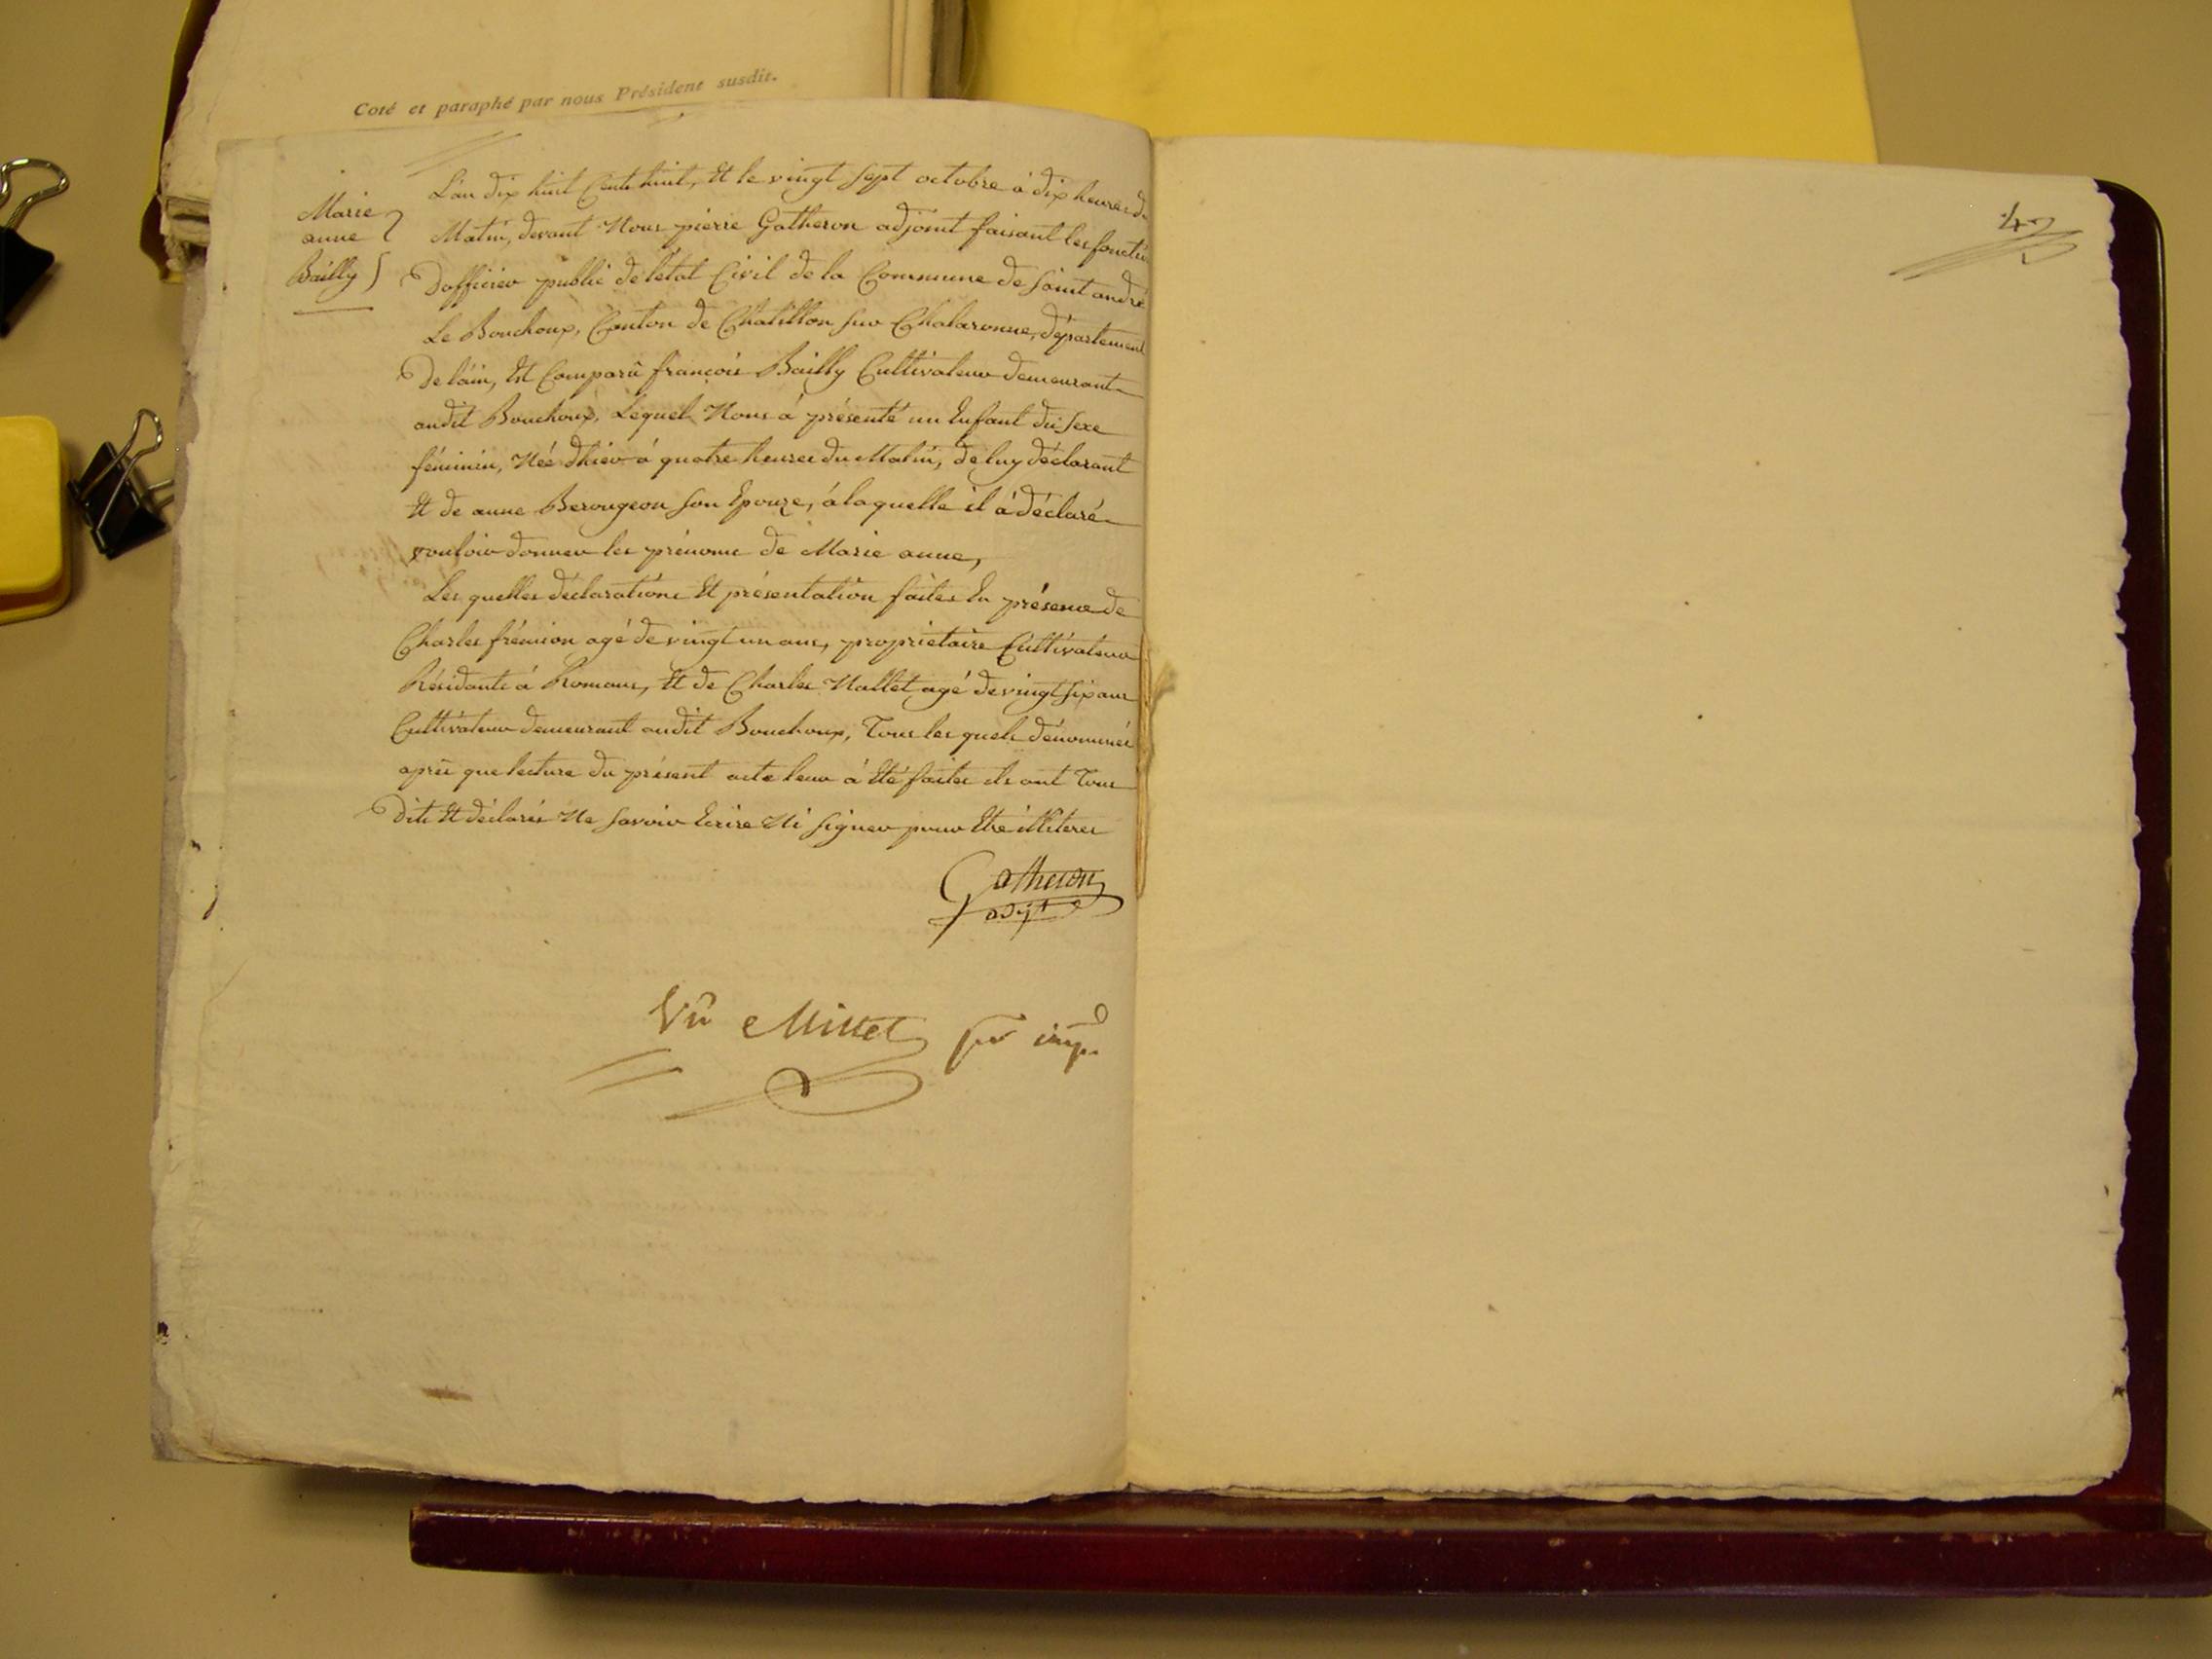 Coté et paraphé par nous Président susdit.
Marie
anne
Bailly
L'an dix huit Cents huit, Et le vingt Sept octobre à dix heures du
Matin, devant Nous pierre Gatheron adjoint faisant les foncti
D'officier public de létat Civil de la Commune de Saint andré
Le Bouchoux, Canton de Chatillon sur Chalaronne, département
De láin, Est Comparû françois Bailly Cultivateur demeurant
audit Bouchoux, Lequel Nous á présenté un Enfant du Sexe
féminin, Née d'hier á quatre heures du Matin, de luy déclarant
Et de anne Berougeon son Epouze, á laquelle il á déclaré
vouloir donner les prénoms de Marie anne,
Les quelles déclarations Et présentation faites En présence de
Charles frémion agé de vingt un ans, propriétaire Cultivateur
Résidants á Romans, Et de Charles Nallet agé de vingt six ans
Cultivateur demeurant audit Bouchoux, Tous les quels dénommés
après que lecture du présent acte leur á Eté faites ils ont Tous
Dits Et déclarés Ne savoir Ecrire Ni signer pour Etre illiteres
Gatheron
adjt
Vû Millet pr imp.
47